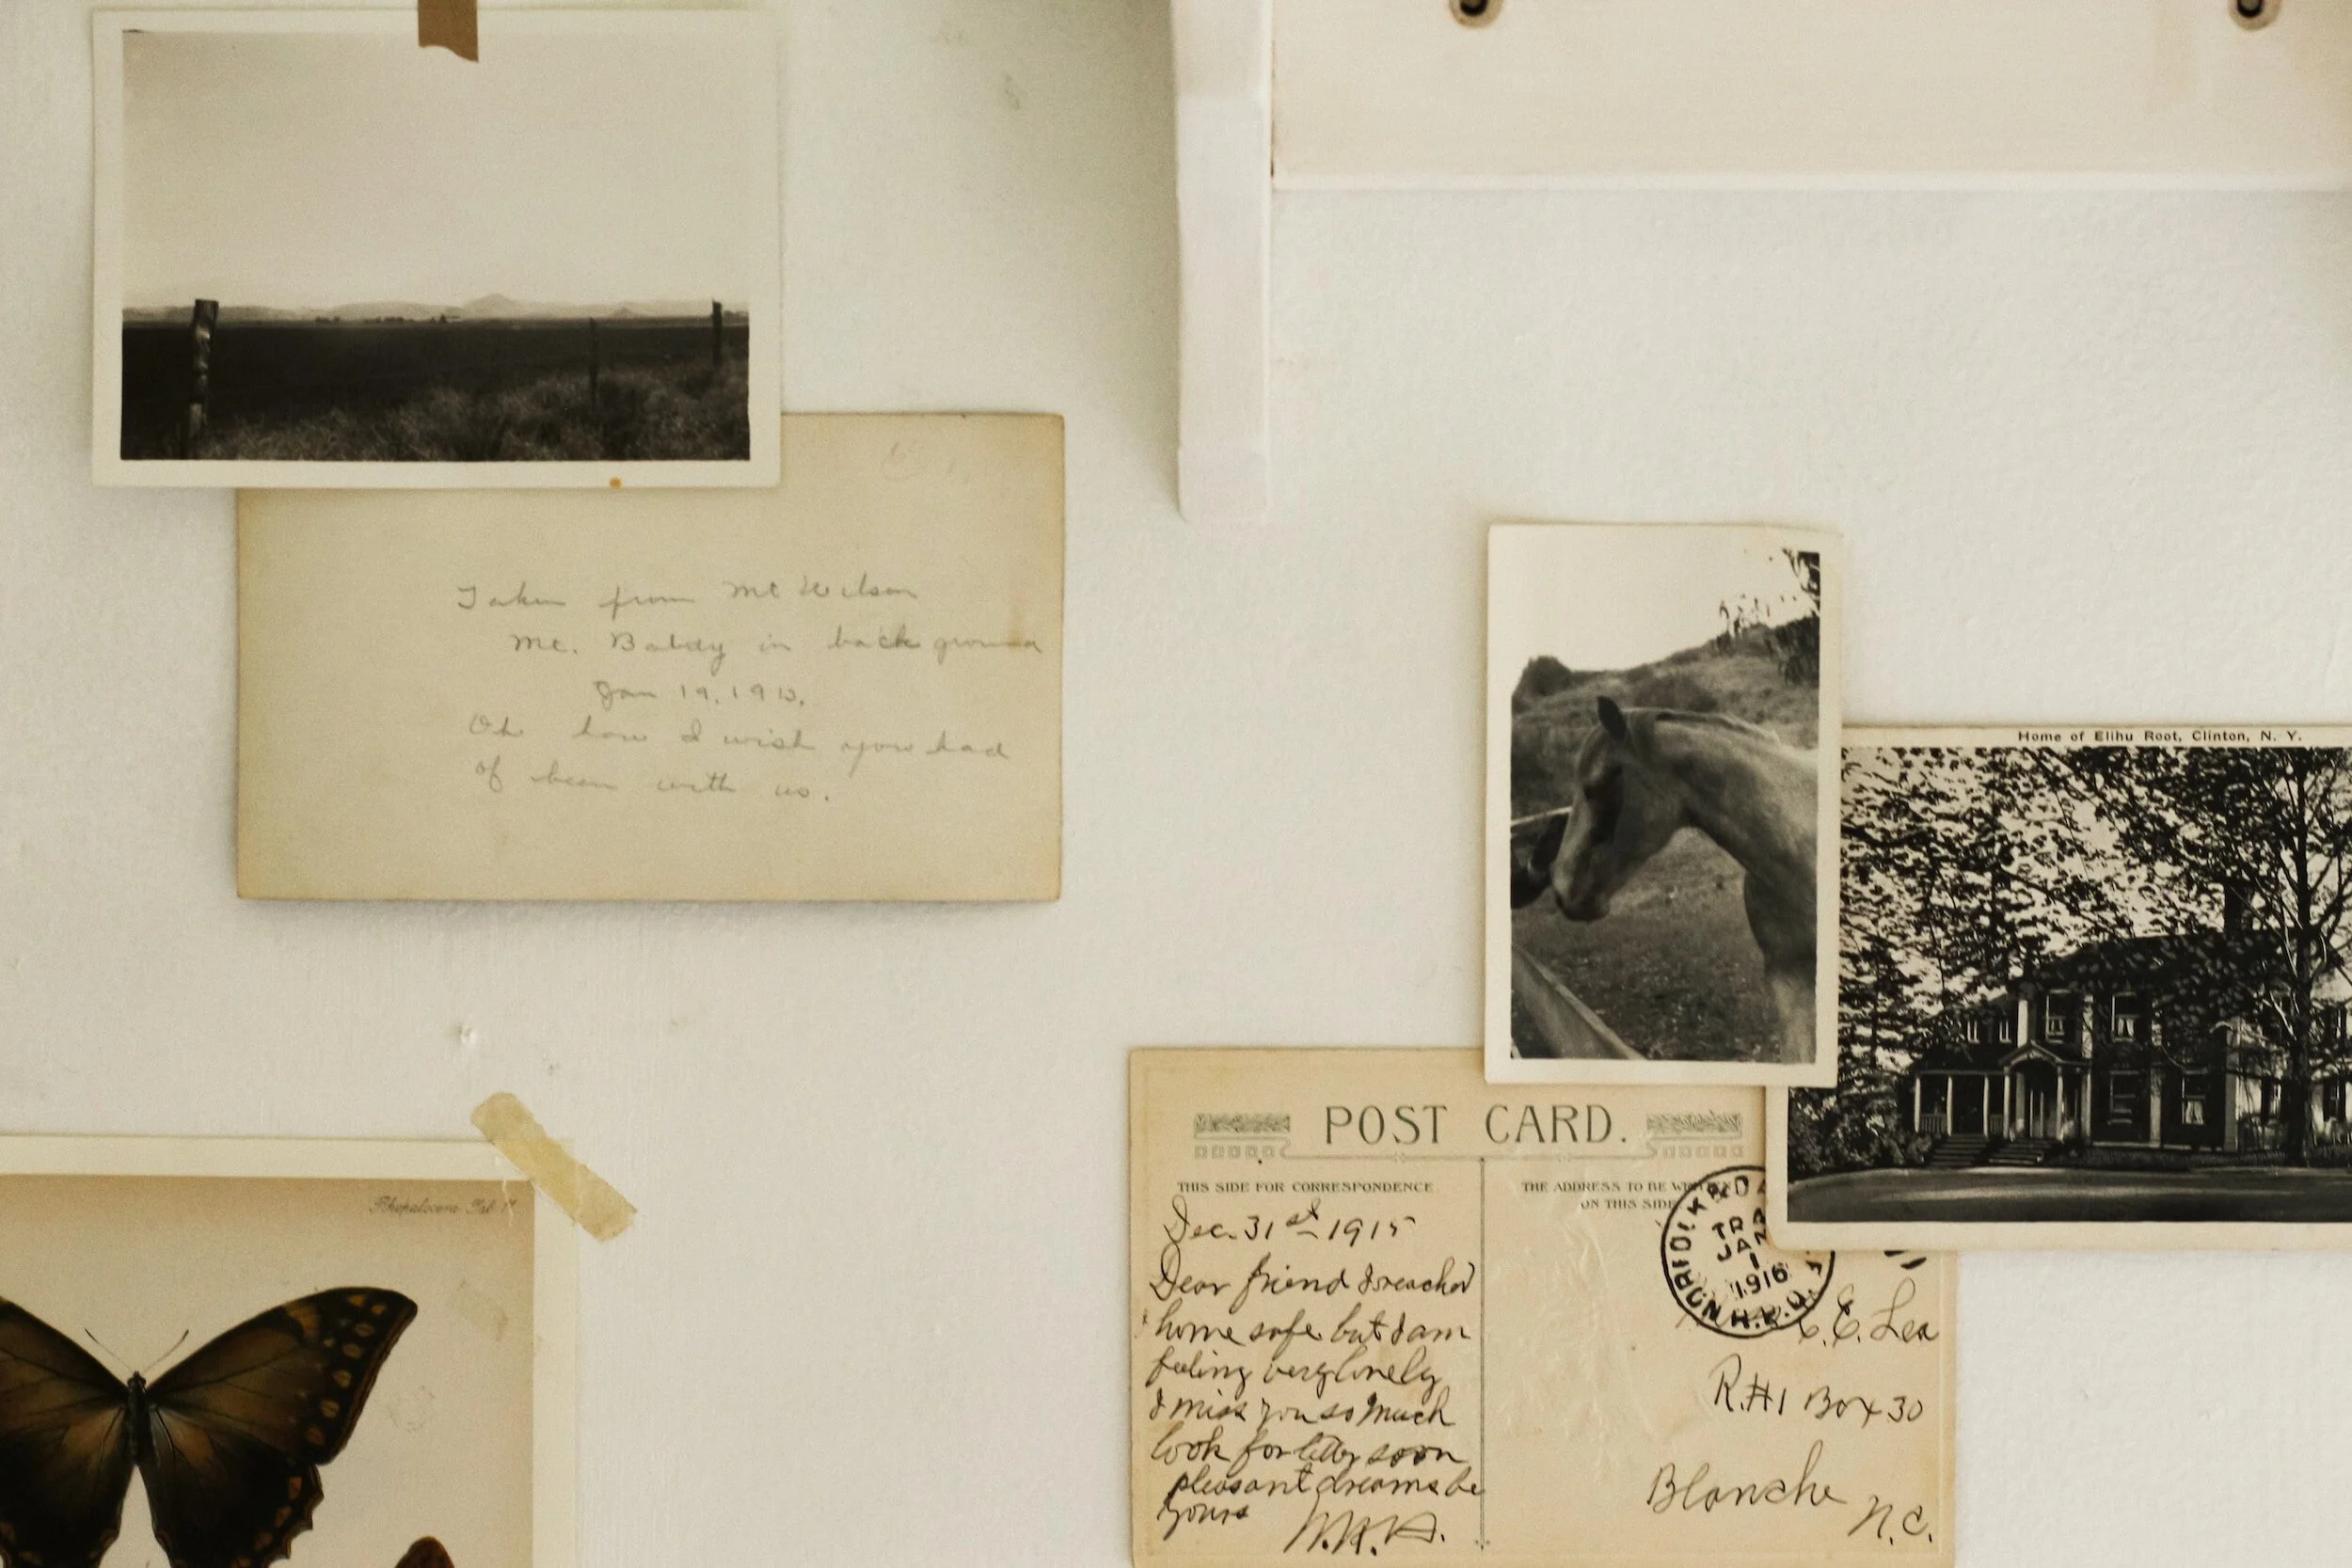 Taken from Mt Wilson
Mt. Baldy in back ground
Jan 19, 1913.
Oh how I wish you had
of been with us.
Home of Elihu Root, Clinton, N. Y.
POST CARD.
THIS SIDE FOR CORRESPONDENCE
THE ADDRESS TO BE WRITTEN
ON THIS SIDE
Dec. 31st 1915
Dear friend I reached
home safe but I am
feeling very lonely
I miss you so much
look for letter soon
pleasant dreams be
yours
JAN
1
1916
R.P.O.
C.E. Lea
R.#1 Box 30
Blanche
N.C.
Rhopalocera